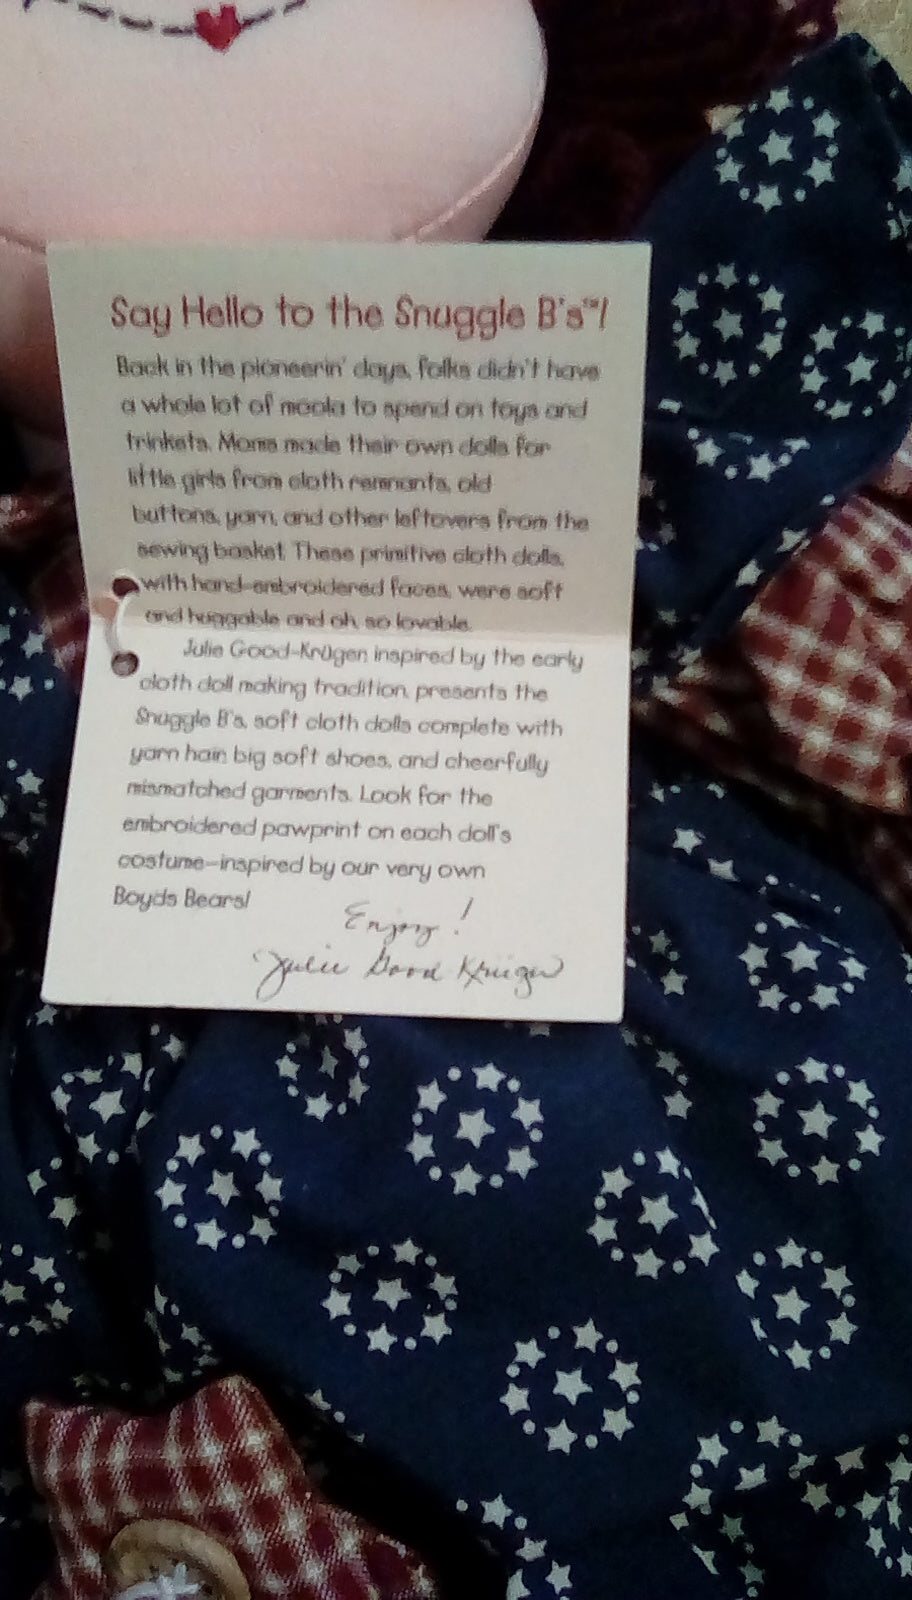 Say Hello to the Snuggle B's™!
Back in the pioneerin' days, folks didn't have
a whole lot of moola to spend on toys and
trinkets. Moms made their own dolls for
little girls from cloth remnants, old
buttons, yarn, and other leftovers from the
sewing basket. These primitive cloth dolls,
with hand-embroidered faces, were soft
and huggable and oh, so lovable.
Julie Good-Krüger, inspired by the early
cloth doll making tradition, presents the
Snuggle B's, soft cloth dolls complete with
yarn hair, big soft shoes, and cheerfully
mismatched garments. Look for the
embroidered pawprint on each doll's
costume-inspired by our very own
Boyds Bears!
Enjoy!
Julie Good Krüger